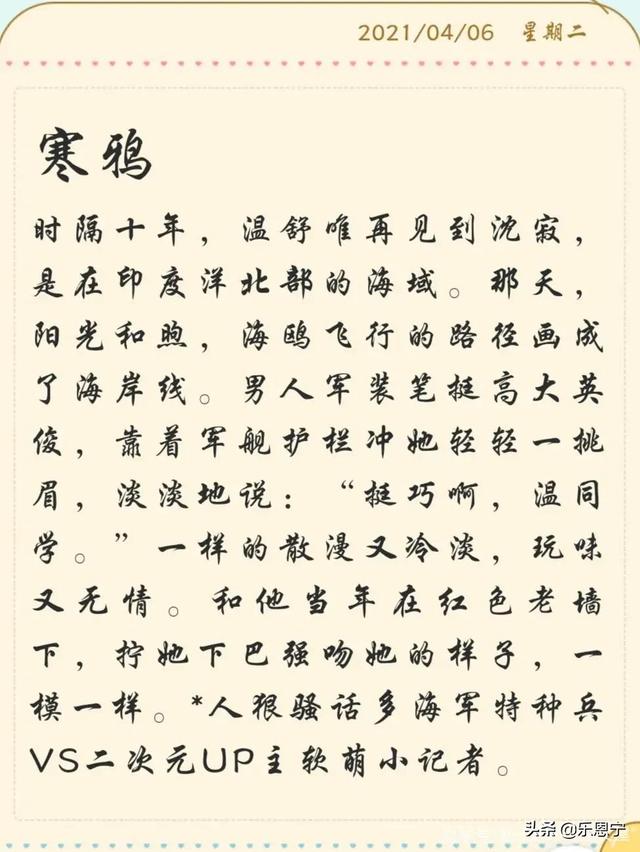 2021/04/06 星期二
寒鸦
时隔十年，温舒唯再见到沈寂，
是在印度洋北部的海域。那天，
阳光和煦，海鸥飞行的路径画成
了海岸线。男人军装笔挺高大英
俊，靠着军舰护栏冲她轻轻一挑
眉，淡淡地说：“挺巧啊，温同
学。”一样的散漫又冷淡，玩味
又无情。和他当年在红色老墙
下，拧她下巴强吻她的样子，一
模一样。*人狠骚话多海军特种兵
VS二次元UP主软萌小记者。
头条 @乐恩宁